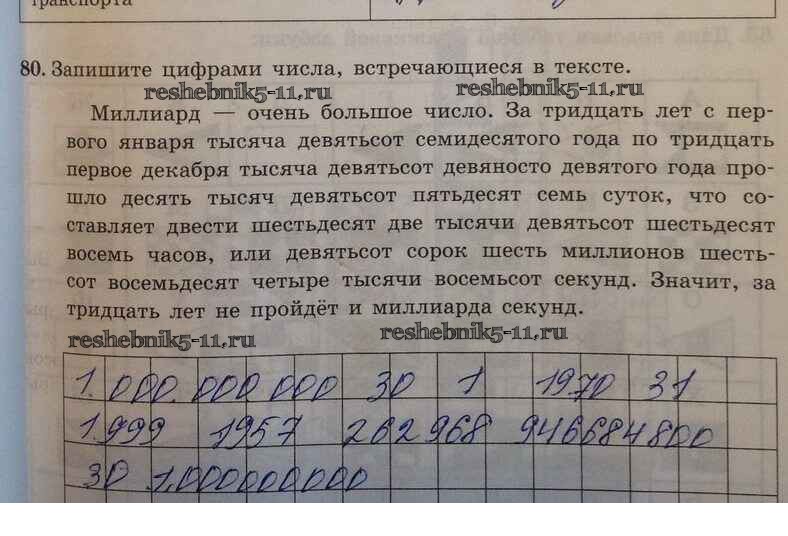 транспорта
80. Запишите цифрами числа, встречающиеся в тексте.
reshebnik5-11.ru reshebnik5-11.ru
Миллиард — очень большое число. За тридцать лет с пер-
вого января тысяча девятьсот семидесятого года по тридцать
первое декабря тысяча девятьсот девяносто девятого года про-
шло десять тысяч девятьсот пятьдесят семь суток, что со-
ставляет двести шестьдесят две тысячи девятьсот шестьдесят
восемь часов, или девятьсот сорок шесть миллионов шесть-
сот восемьдесят четыре тысячи восемьсот секунд. Значит, за
тридцать лет не пройдёт и миллиарда секунд.
reshebnik5-11.ru reshebnik5-11.ru
1. 000. 000 000 30 1 1970 31
1.999 1957 262 968 946684800
30 1.000000000